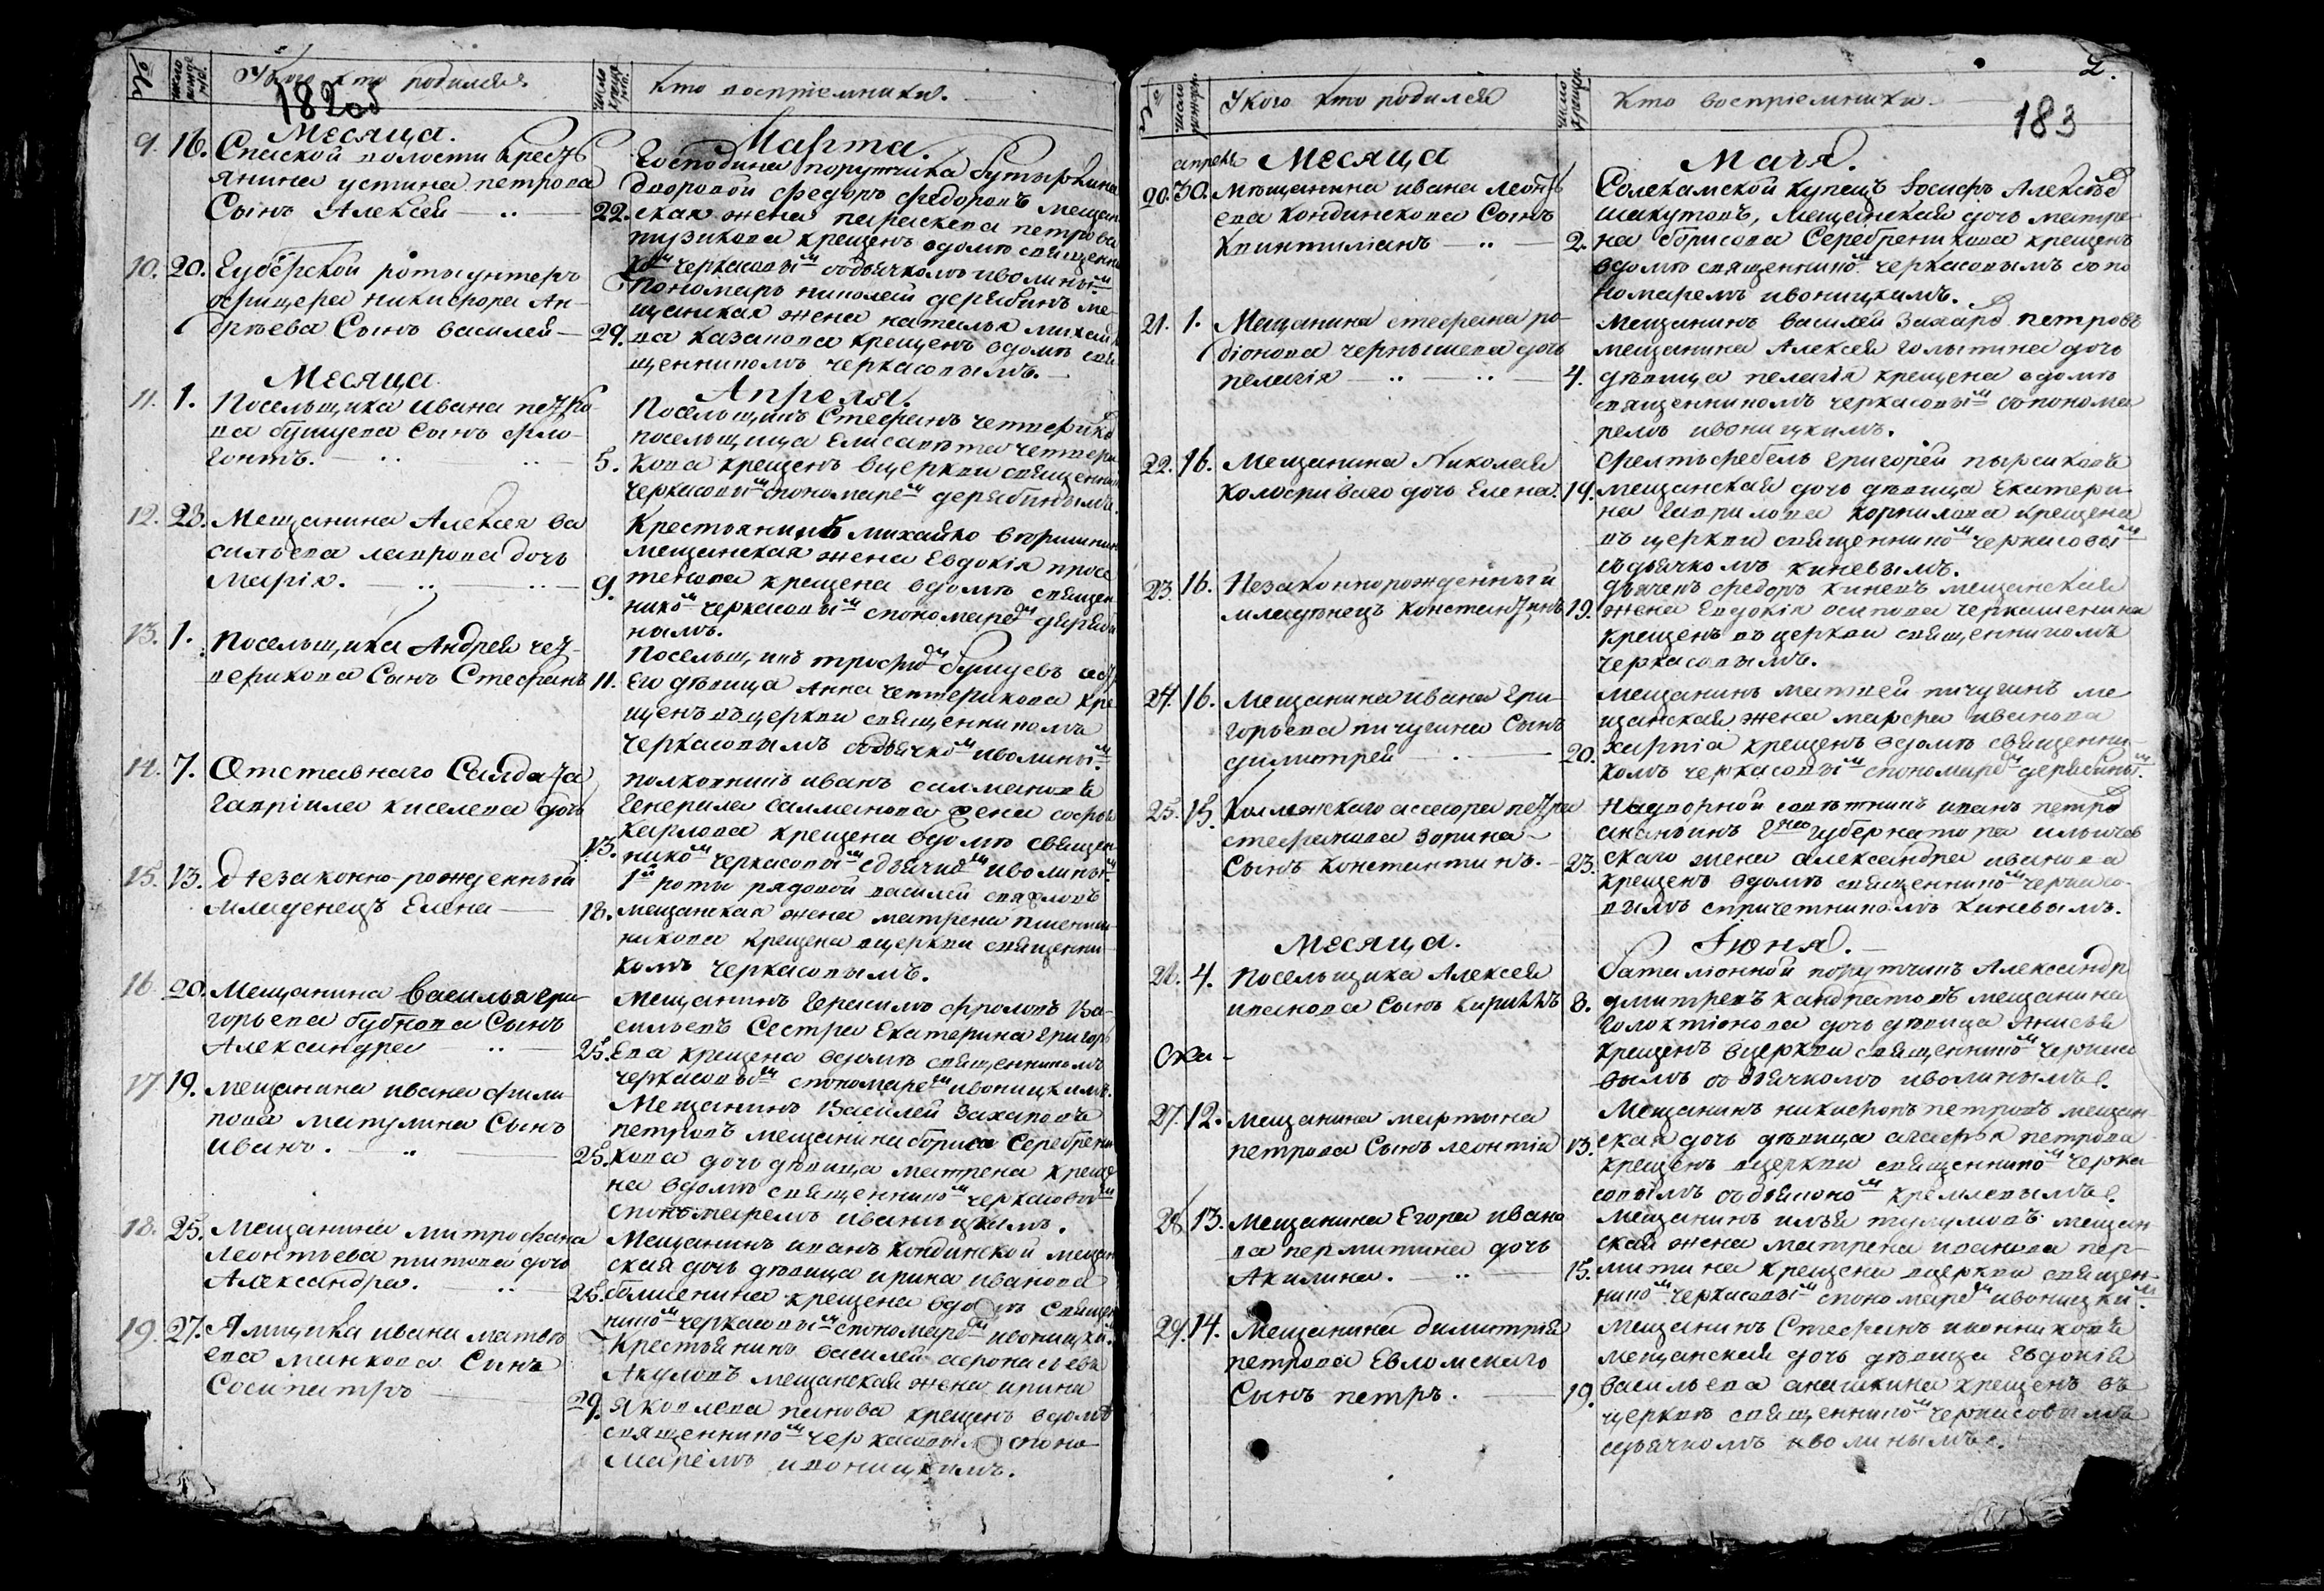 №
число рожде нія.
У кого кто родился.
число креще нія.
Кто воспріемники.
182об
Месяца.
Марта.
9. 16. Спаской волости крестъ
янина устина петрова
Сынъ Алексей
22.
Господина порутчика Бутыркина
дворовой федоръ федоровъ мещан
ская жена параскева петрова
пузикова крещенъ вдомѣ священни
комъ черкасовымъ содьячкомъ иволинымъ
10. 20. Губерской роты унтеръ
офицера никифора Ан-
дрѣева Сынъ василей
29.
Пономарь николай дерябинъ ме
щанская жена наталья михайло
ва казакова крещенъ вдомѣ свя
щенникомъ черкасовымъ.
Месяца
Апреля.
11. 1. Посельщика ивана петро-
ва бушуева Сынъ фло-
гонтъ.
5.
Посельщикъ Стефанъ четверико
посельщица Елисавета четвери
кова крещенъ вцеркви священни
черкасовымъ спономаремъ дерябинымъ
12. 23. Мещанина Алексея ва
сильева лаврова дочь
Марія.
9.
Крестьянинъ михайло
мещанская жена Евдокія
крещена вдомѣ священ
никомъ черкасовымъ спономаремъ деряби
нымъ.
13. 1. Посельщика Андрея чет-
верикова Сынъ Стефанъ
11.
Посельщикъ трофимъ бушуевъ сест
Его дѣвица Анна четверикова кре
щенъ въцеркви священникомъ
черкасовымъ содьячкомъ иволинымъ
14. 7. Отставнаго Салдата
Гавріила киселева дочь
13.
полковникъ иванъ салмановъ
генерала салманова жена софья
карлова крещена вдомѣ священ
никомъ черкасовымъ сдьячкомъ иволинымъ
15. 13. Незаконно-рожденный
младенецъ Елена
18.
1й роты рядовой василей
мещанская жена матрена пшенни
никова крещена вцеркви священни-
комъ черкасовымъ.
16. 20. Мещанина Василья гри-
горьева бубнова Сынъ
Александра
25.
Мещанинъ Герасимъ фроловъ Ва-
сильевъ Сестра Екатерина григорь
ева крещена вдомѣ священникомъ
черкасовымъ спономаремъ ивоницкимъ.
17 19. мещанина ивана фили
пова матулина Сынъ
иванъ.
25.
Мещанинъ Василей Захаровъ
петровъ мещанина бориса Серебрени
кова дочь дѣвица матрена креще
на вдомѣ священникомъ черкасовымъ
спономаремъ иваницкимъ.
18. 25. Мещанина митрофана
Леонтьева титова дочь
Александра.
28.
Мещанинъ иванъ кондинской мещан
ская дочь дѣвица ирина иванова
крещена вдомѣ священ
никомъ черкасовымъ спономаремъ ивоницкимъ
19. 27. Ямщика ивана матвѣ
ева минкова Сынъ
Сосипатръ
29.
Крестьянинъ василей афонасьевъ
Акуловъ мещанская жена ирина
Яковлева панова крещенъ вдомѣ
священникомъ черкасовымъ споно
маремъ ивоницкимъ.
2.
183
№
число рожден.
У кого кто родился
число крещен.
Кто воспріемники.
апреля Месяца
Маія.
20. 30. Мѣщанина ивана леонть
ева кондинскова Сынъ
квинтиліанъ
2.
Соликамской купецъ Іосифъ Алексѣевъ
шакутовъ, мещанская дочь матре-
на борисова Серебреникова крещенъ
вдомѣ священникомъ черкасовымъ сопо
номаремъ ивоницкимъ.
21. 1. Мещанина стефана ро-
діонова чернышева дочь
пелагія
4.
Мещанинъ василей Захаровъ петровъ
мещанина Алексея голытина дочь
дѣвица пелагія крещена вдомѣ
священникомъ черкасовымъ сопонома
ремъ ивоницкимъ.
22. 16. Мещанина Николая
колосниваго дочь Елена.
19.
фелтьфебель григорей пырсиковъ
мещанская дочь дѣвица Екатери-
на гаврилова корнилова крещена
въ церкви священникомъ черкасовымъ
съдьячкомъ киневымъ.
23. 16. Незаконнорожденный
младѣнецъ константинъ
19.
дьячекъ федоръ киневъ мещанская
жена Евдокія осипова черкашенина
крещенъ въ церкви священникомъ
черкасовымъ.
24. 16. Мещанина ивана гри-
горьева пичугина Сынъ
димитрей
20.
мещанинъ матвей пичугинъ ме
щанская жена марфа иванова
харпіа крещенъ вдомѣ священни
комъ черкасовымъ спономаремъ дерябинымъ
25. 15. Коллежскаго ассесора петра
стефанова зорина
Сынъ константинъ.
23.
Надворной советникъ иванъ петровъ
ананьинъ губернатора ильичев
скаго жена александра иванова
крещенъ вдомѣ священникомъ черкасо-
вымъ спричетникомъ киневымъ.
Месяца.
Іюня.
26. 4. Посельщика Алексея
иванова Сынъ кириллъ
8.
баталіонной порутчикъ Александръ
дмитревъ кандратовъ мещанина
Голоктіонова дочь дѣвица Анисья
крещенъ вцеркви священникомъ черкасо
вымъ содьячкомъ иволинымъ.
ска-
27. 12. мещанина мартына
петрова Сынъ леонтіи
13.
Мещанинъ никифоръ петровъ мещан-
ская дочь дѣвица агафья петрова
крещенъ вцеркви священникомъ черка
совымъ содьякономъ кремлевымъ.
28. 13. Мещанина Егора ивано
ва пермитина дочь
Акилина.
15.
мещанинъ илья тулумовъ мещан-
ская жена матрена иванова пер-
митина крещена вцеркви священ-
никомъ черкасовымъ спономаремъ ивоницкимъ
29. 14. Мещанина димитрія
петрова Евломскаго
Сынъ петръ.
19.
мещанинъ Стефанъ иконниковъ
мещанская дочь дѣвица Евдокія
васильева анашкина крещенъ въ
церкви священникомъ черкасовымъ
содьячкомъ иволинымъ.